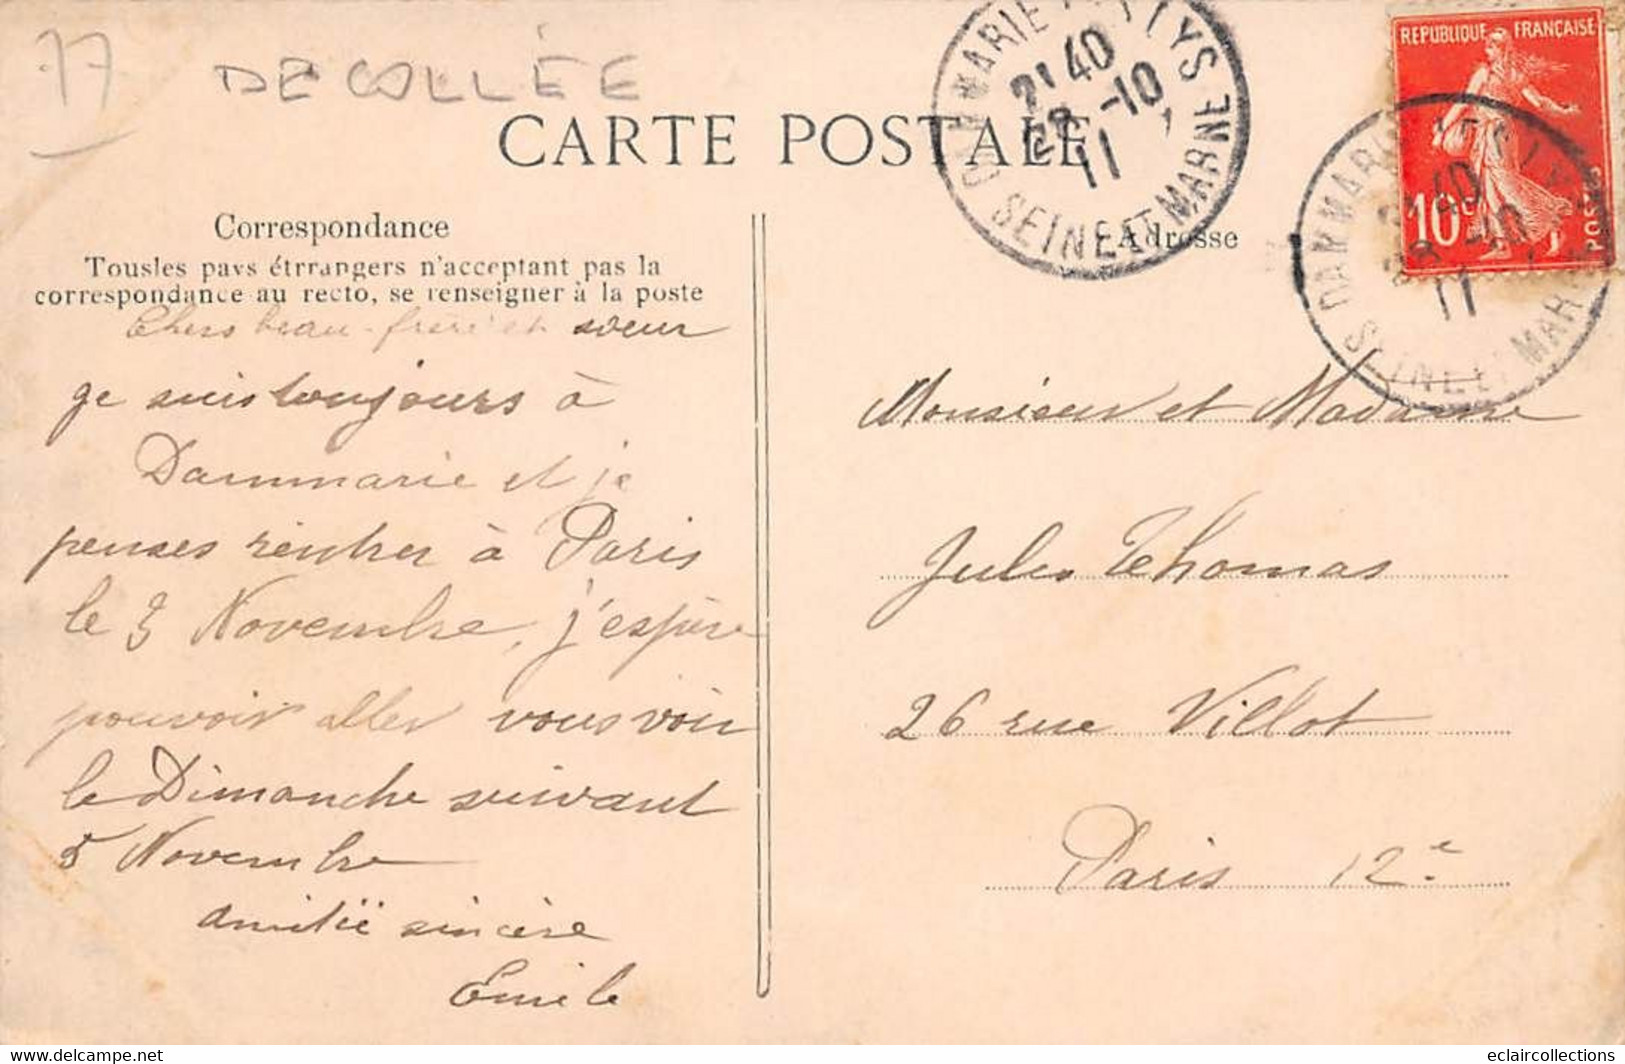 77
DECOLLÉE
CARTE POSTALE
DAMMARIE LES LYS
21 40
28 -10
11
SEINE ET MARNE
REPUBLIQUE FRANÇAISE
10c
POSTES
DAMMARIE LES LYS
21 40
28 -10
11
SEINE ET MARNE
Correspondance
Tousles pays étrrangers n'acceptant pas la
correspondance au recto, se renseigner à la poste
Chers beau-frère et soeur
je suis toujours à
Dammarie et je
penses rentrer à Paris
le 3 Novembre, j'espère
pouvoir aller vous voir
le Dimanche suivant
5 Novembre
amitié sincère
Emile
Adresse
Monsieur et Madame
Jules Thomas
26 rue Villot
Paris 12e
eclaircollections